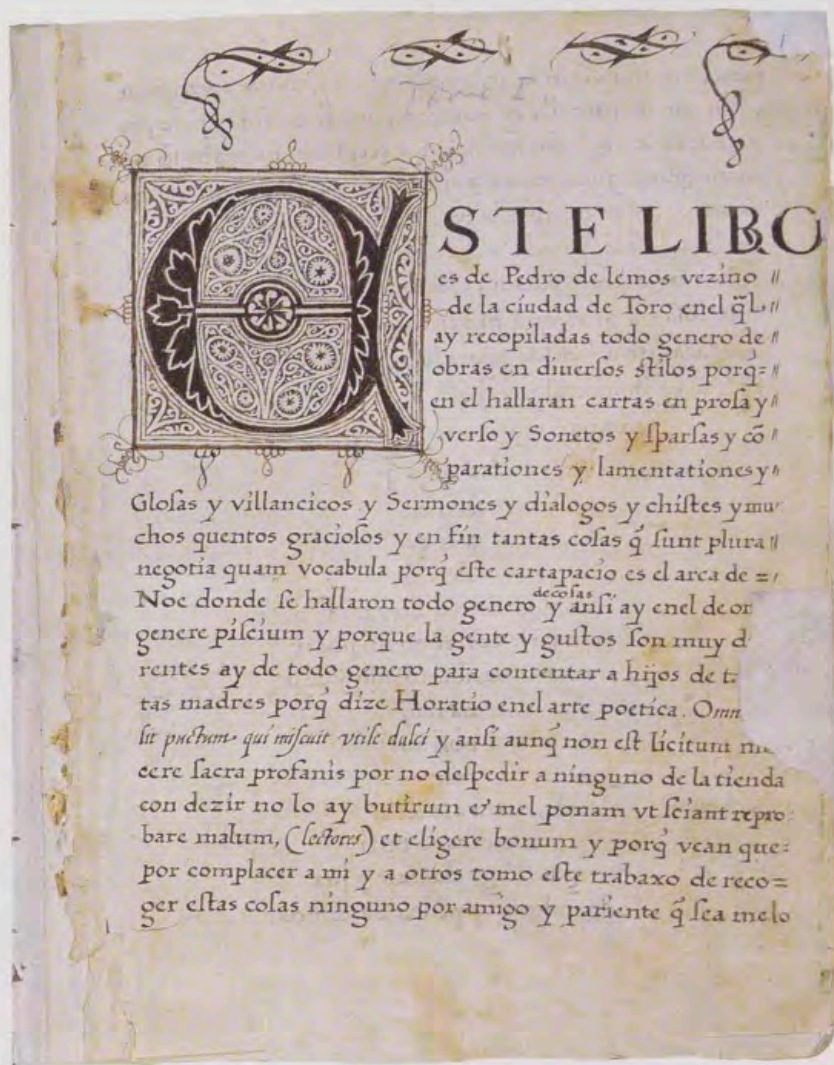 ESTE LIBRO
es de Pedro de lemos vezino //
de la ciudad de Toro enel q̃l //
ay recopiladas todo genero de //
obras en diuersos stilos porq̃= //
en el hallaran cartas en prosa y
verso y Sonetos y sparsas y cõ //
parationes y lamentationes y //
Glosas y villancicos y Sermones y dialogos y chistes y mu
chos quentos graciosos y en fin tantas cosas q̃ sunt plura //
negotia quam vocabula porq̃ este cartapacio es el arca de =/
Noe donde se hallaron todo genero de cosas y ansi ay enel de or
genere piscium y porque la gente y gustos son muy d
rentes ay de todo genero para contentar a hijos de t
tas madres porq̃ dize Horatio enel arte poetica. Omn
lit punctum qui miscuit vtile dulci y ansi aunq̃ non est licitum
cere sacra profanis por no despedir a ninguno de la tienda
con dezir no lo ay butirum & mel ponam vt sciant repro
bare malum, (lectores) et eligere bonum y porq̃ vean que=
por complacer a mi y a otros tomo este trabaxo de reco=
ger estas cosas ninguno por amigo y pariente q̃ sea melo